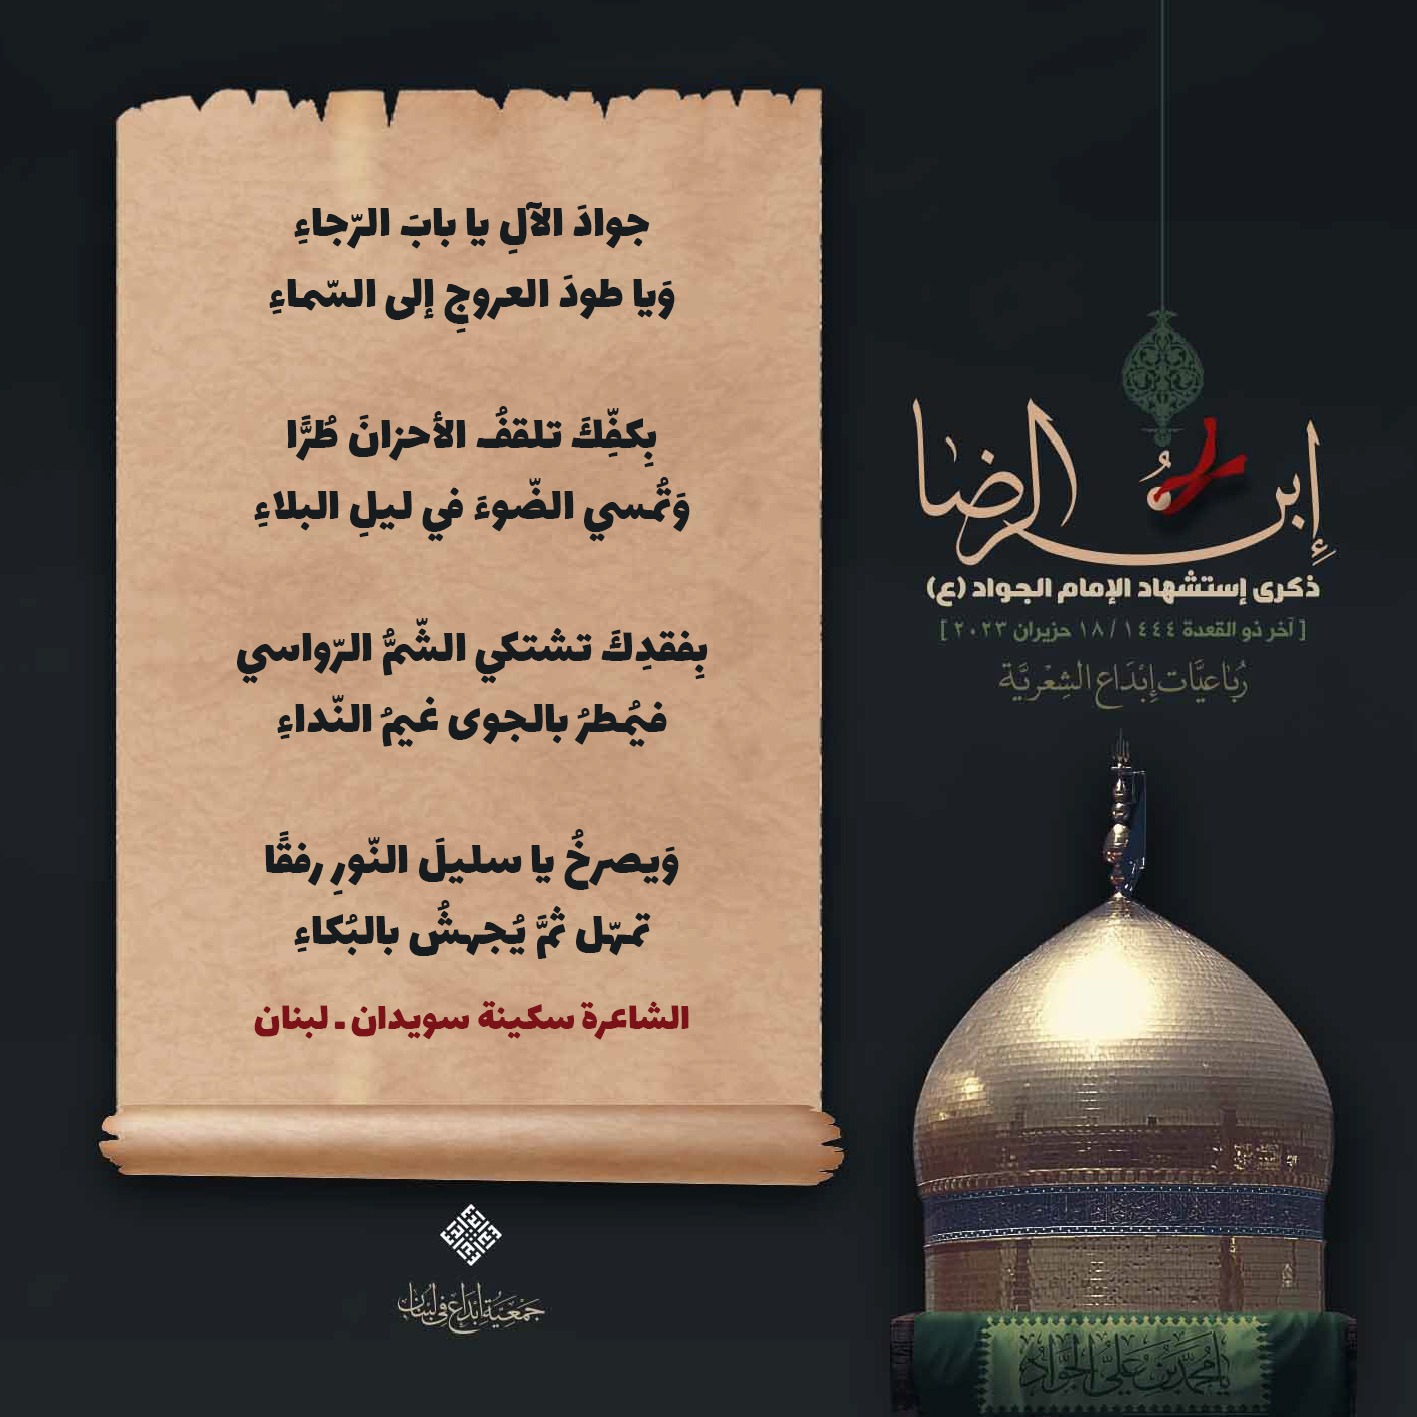 جوادَ الآلِ يا بابَ الرّجاءِ
وَيا طودَ العروجِ إلى السّماءِ
بِكفِّكَ تلقفُ الأحزانَ طُرًّا
وَتُمسي الضّوءَ في ليلِ البلاءِ
بِفقدِكَ تشتكي الشّمُّ الرّواسي
فيُمطرُ بالجوى غيمُ النّداءِ
وَيصرخُ يا سليلَ النّورِ رفقًا
تمهّل ثمَّ يُجهشُ بالبُكاءِ
الشاعرة سكينة سويدان ـ لبنان
إبن الرضا
ذكرى إستشهاد الإمام الجواد (ع)
[ آخر ذو القعدة ١٤٤٤ / ١٨ حزيران ٢٠٢٣ ]
رُبَاعيَّات إبْدَاع الشِعْريَّة
يا محمد بن علي الجواد
جمعية إبداع في لبنان